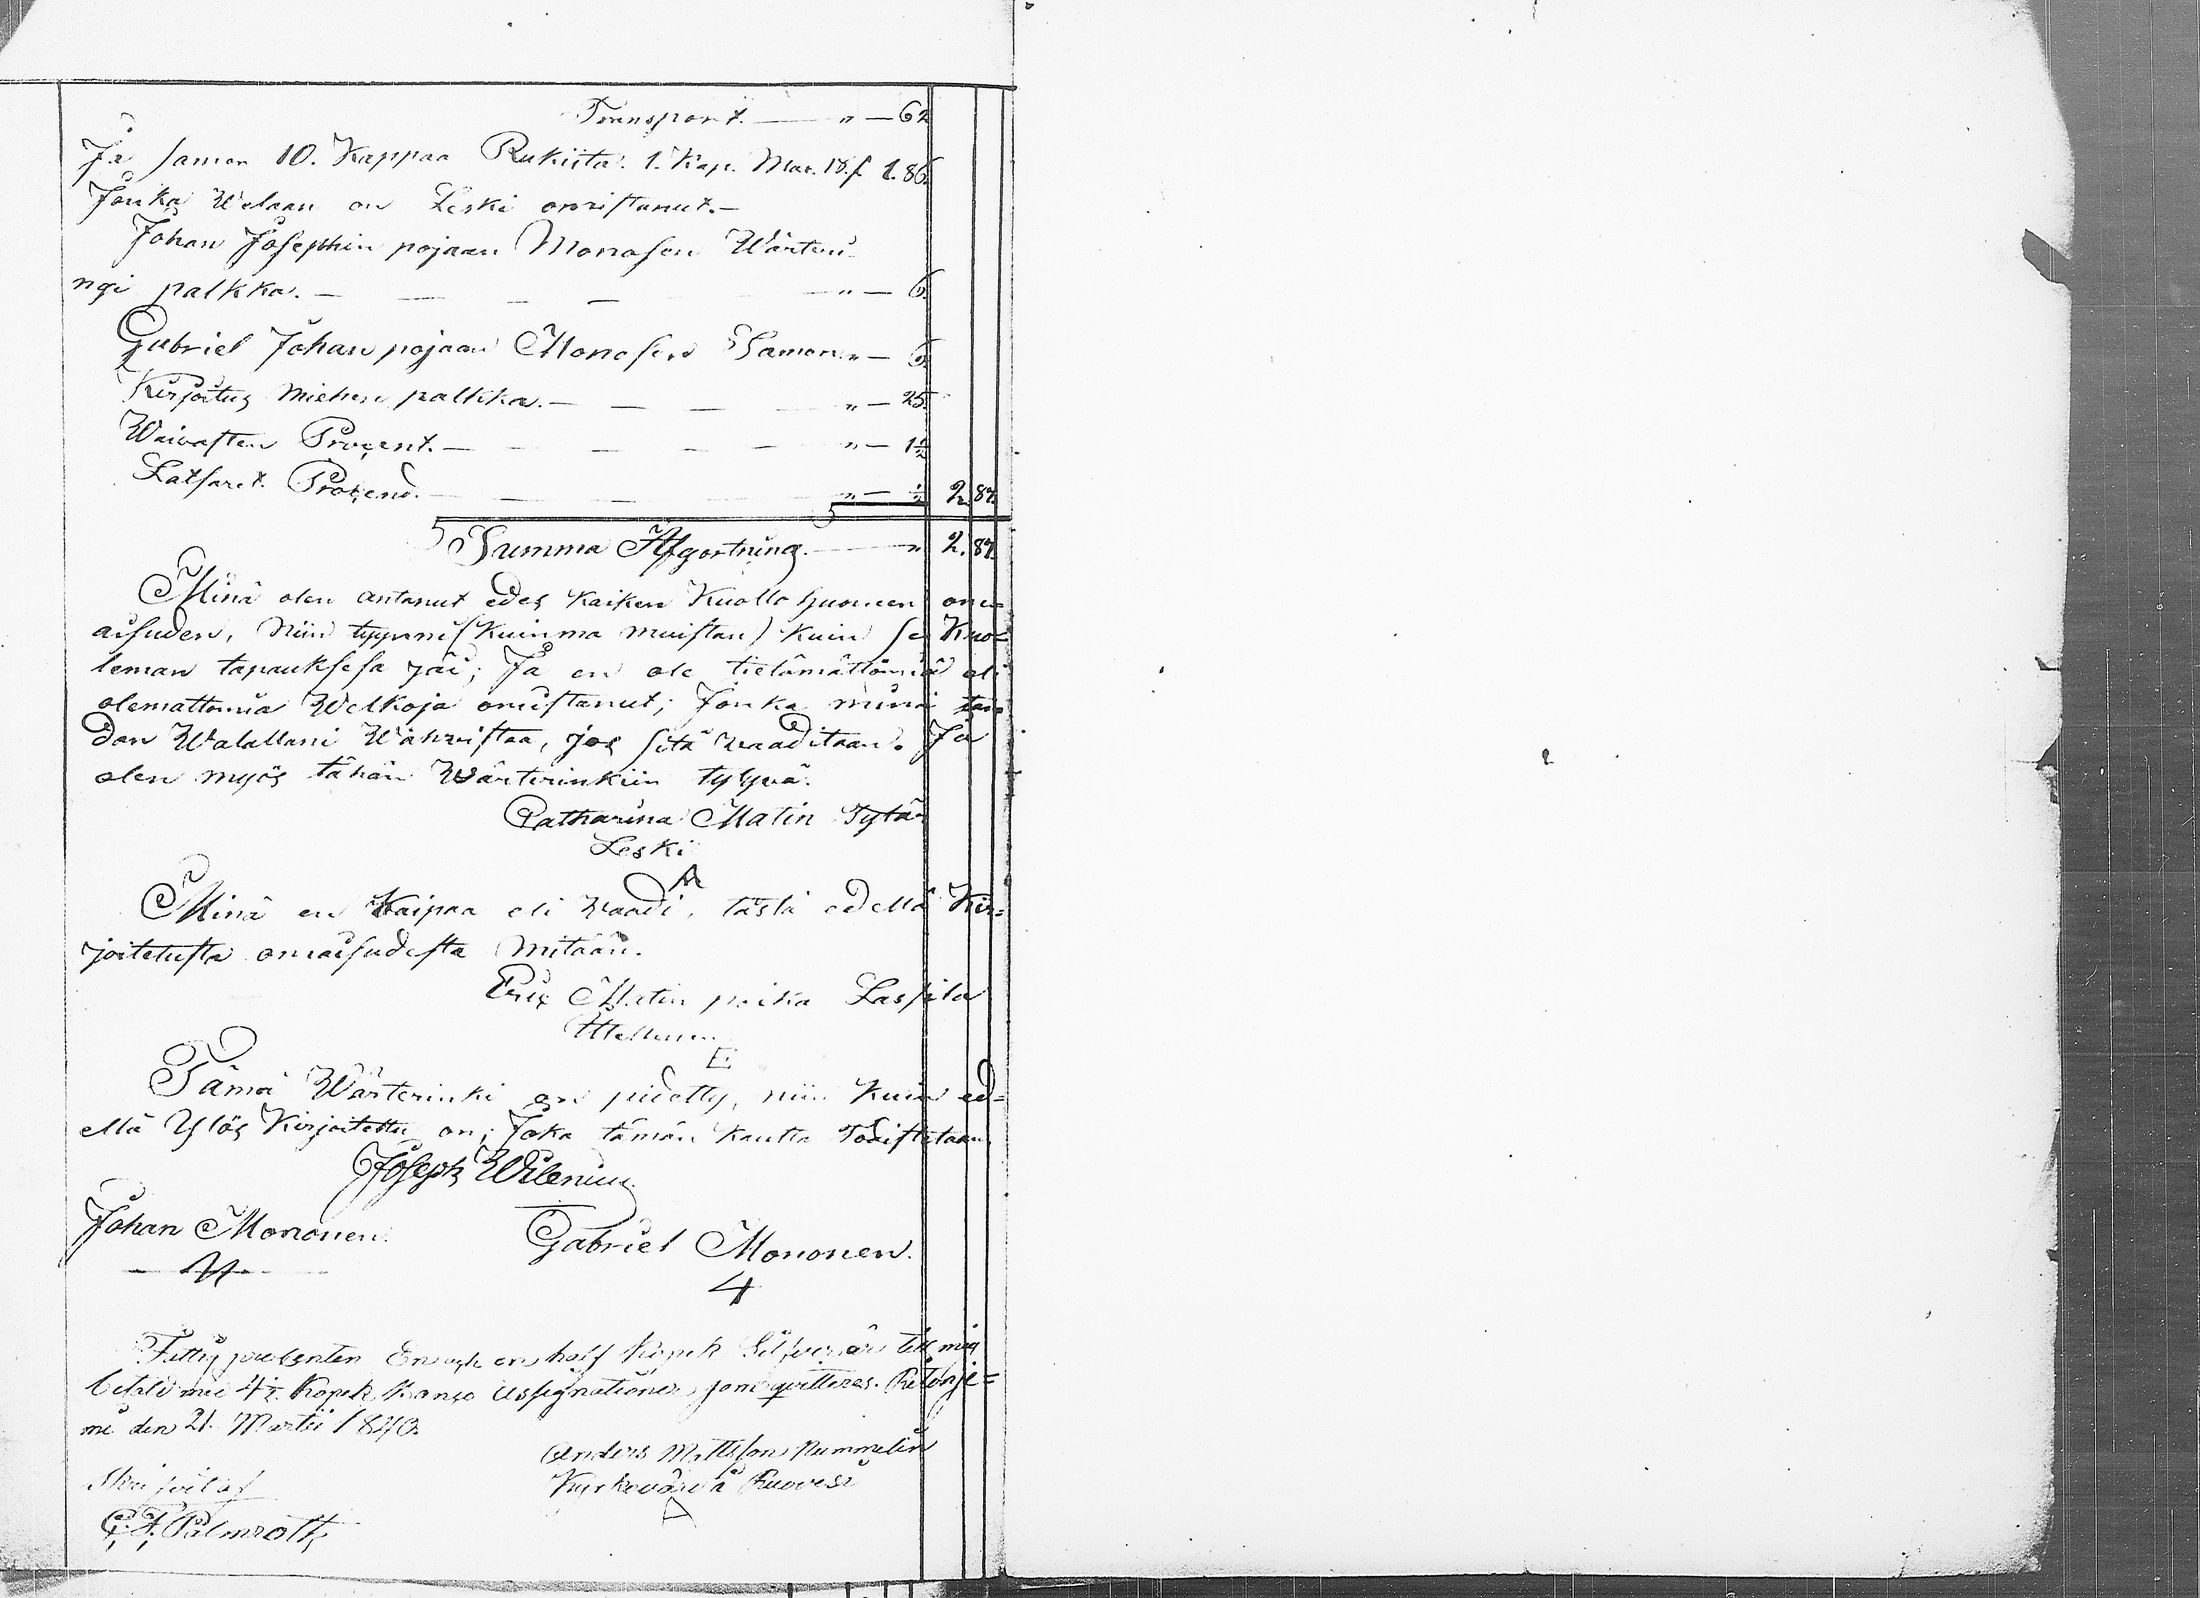 Transport. — " — 62
Ja saman 10. Kappaa Rukiita. 1. Kap. 18. f 1.86.
Jonka Welaan on Leski omistanut.—
Johan Josephin pojaan Monosen Wärteri-
ngi palkka. — — — — " — 6.
Gabriel Johan pojaan Monosen Samon " — 6.
Kirjoitus miehen palkka. — — — " — 25.
Waivasten Procent. — — — — — " — 1½
Latsaret. Procend. — — — — " — ½ 2. 87.
Summa Afgortning. — " 2. 87.
Minä olen antanut edes kaiken Kuollo huonen oma-
aisuden, niin tyynni (kuin ma muistan) kuin se Kuo-
leman tapauksesa jäi; Ja en ole tietämättömiä eli
olemattomia Welkoja omistanut; Jonka minä tai-
dan Walallani Wahwistaa, jos sitä waaditaan. Ja
olen myös tähän Wärterinkiin tytywä.
Catharina Matin Tytär
Leski
Minä en Kaipaa eli waadi, tästä edellä Kir-
joitetusta omaisudesta mitään.
Eric Matin poika Lassila
E
Tämä Wärterinki on pidetty, niin Kuin ed-
ellä Ylös Kirjoitettu on; Joka tämän kautta Todistetaan
Joseph Wilenius.
Johan Mononen. Gabriel Mononen.
4
Fattig procenten En och en half Kopek Silfver är till mig
betald med 4½ Kopek Banco Assignationer, som qvitteras.
den 21. Martii 1840.
Anders Mattsson Rummelin
Kyrkovärd i Ruovesi
Skrifvit af
C. F. Palmroth